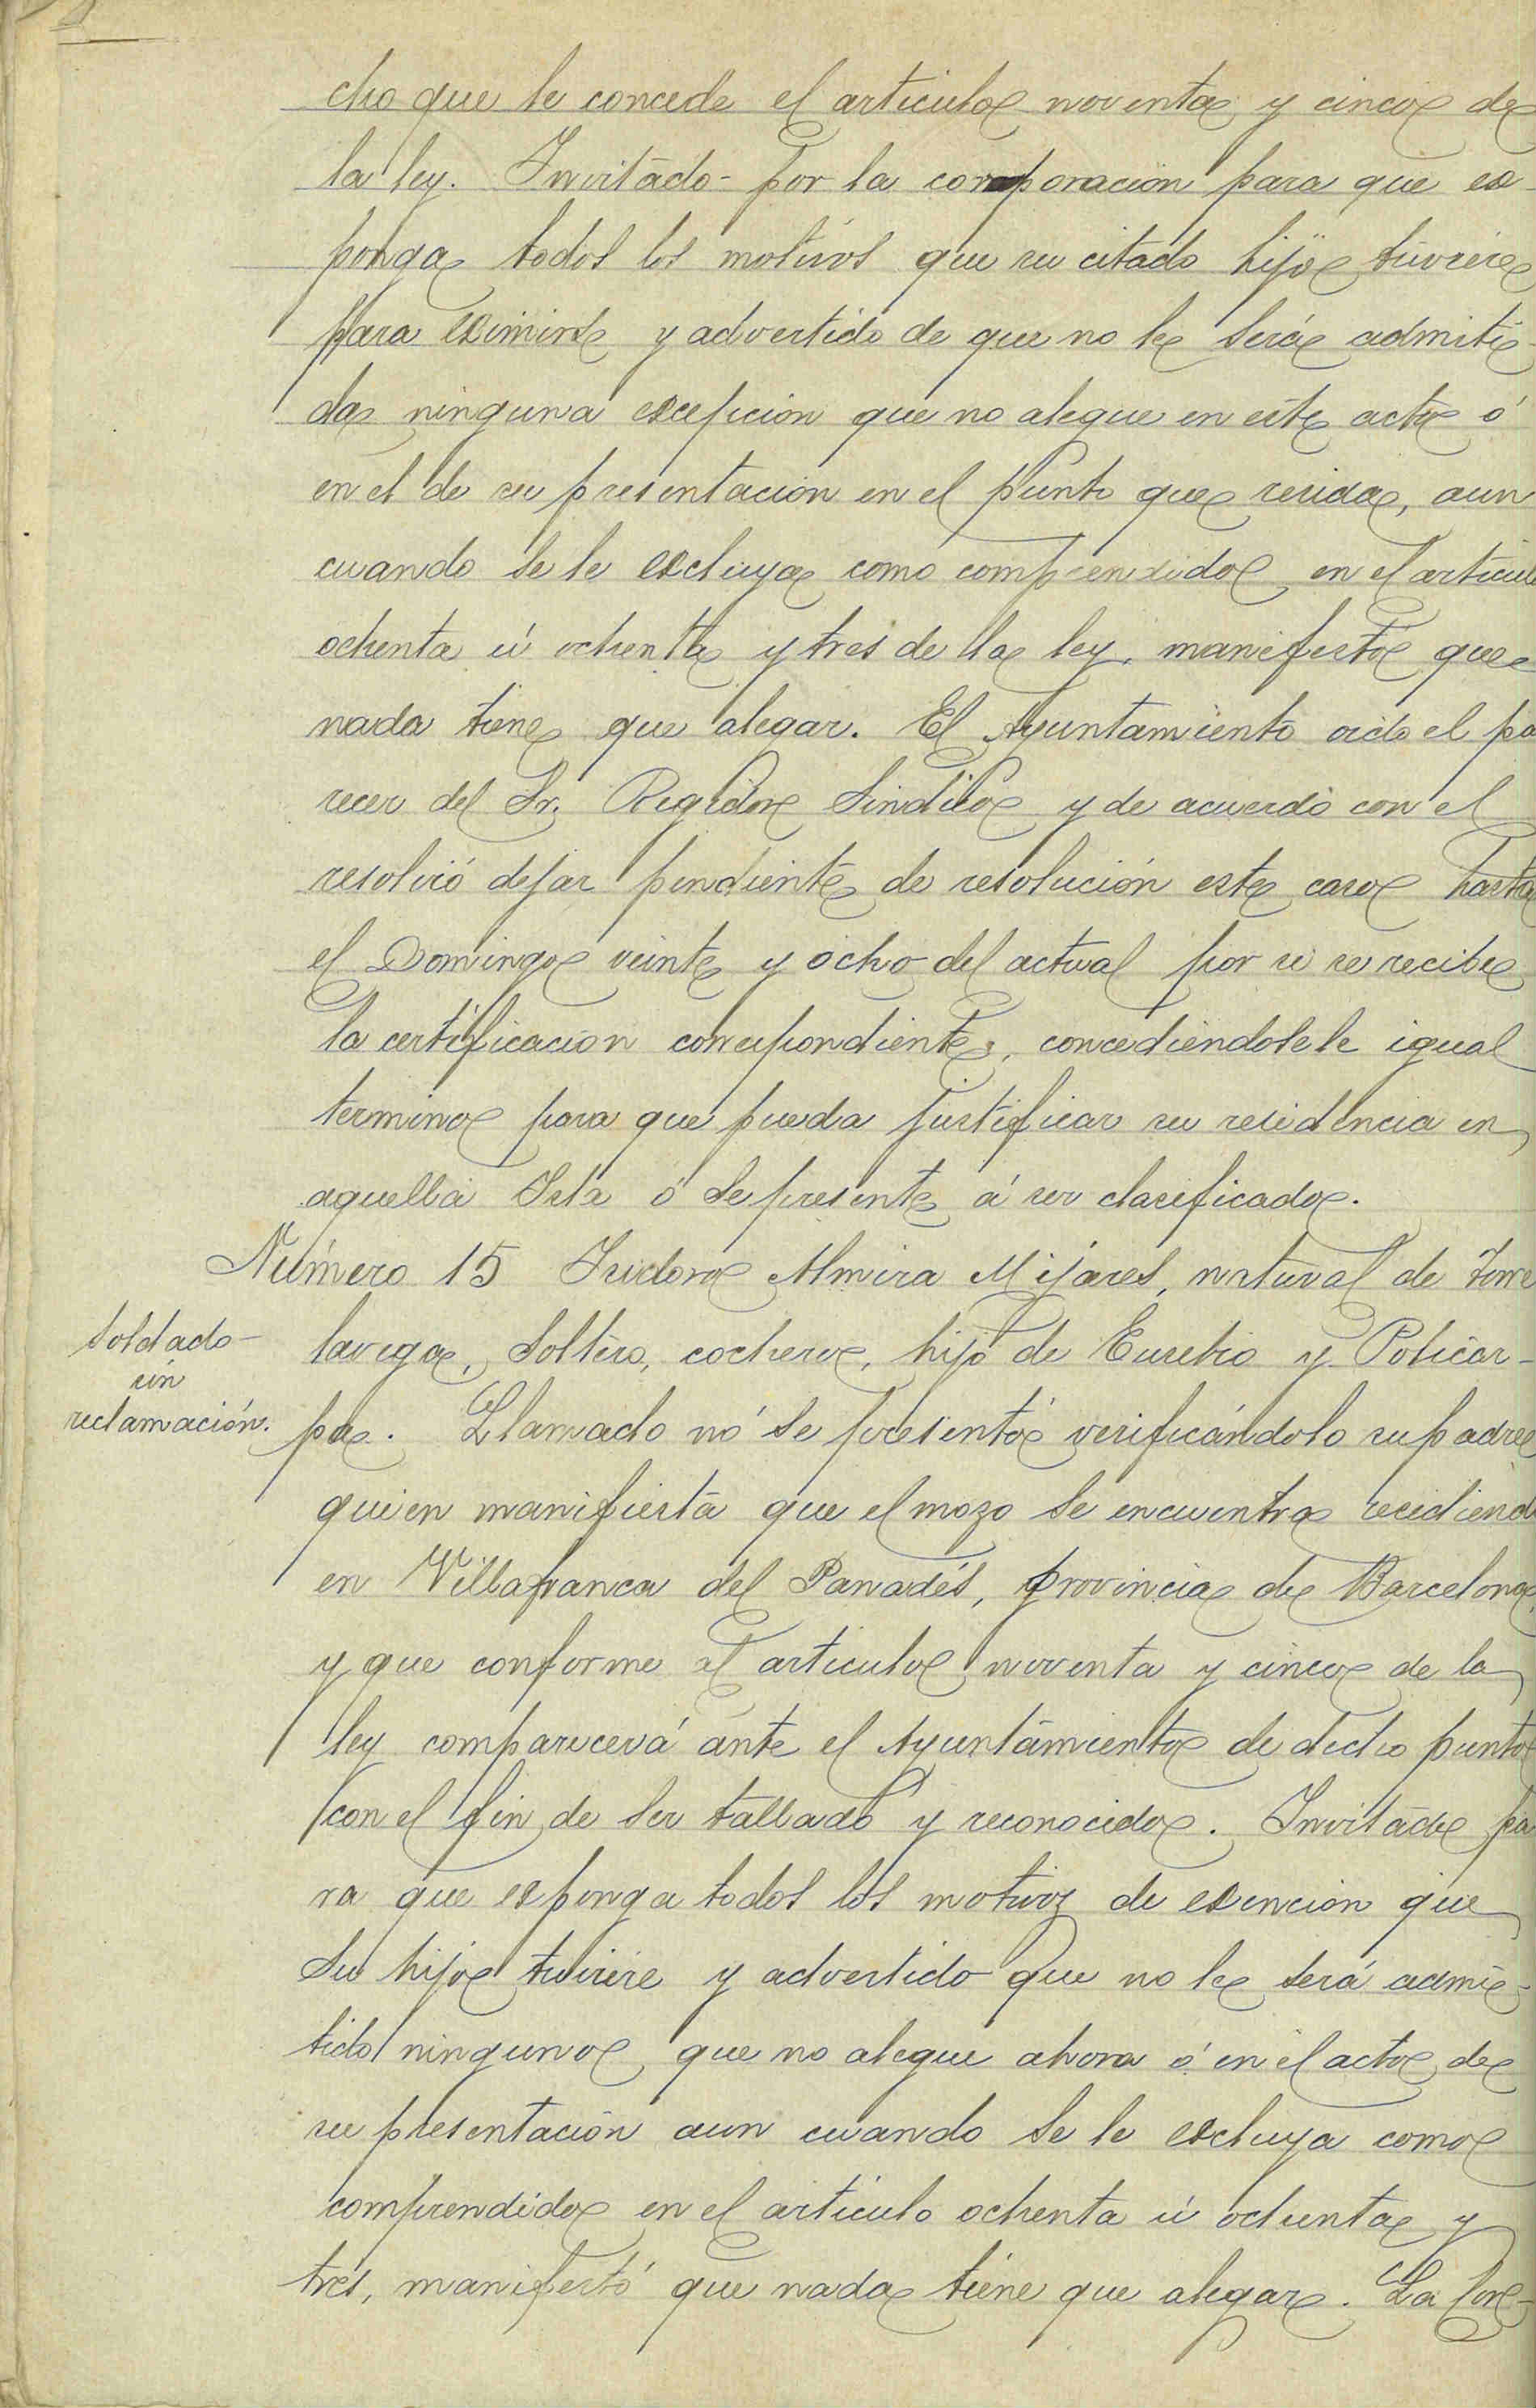 cho que le concede el articulo noventa y cinco de
la ley. Invitado por la corporación para que ex-
ponga todos los motivos que su citado hijo tuviere
para eximirse y advertido de que no le será admiti-
da ninguna excepción que no alegue en este acto ó
en el de su presentación en el punto que resida, aun
cuando se le excluya como comprendido en el articulo
ochenta ú ochenta y tres de la ley, manifesto que
nada tiene que alegar. El Ayuntamiento oido el pa
recer del Sr. Regidor Sindico y de acuerdo con el
resolvió dejar pendiente de resolución este caso hasta
el Domingo veinte y ocho del actual por si se recibe
la certificacion correspondiente, concediendosele igual
termino para que pueda justificar su residencia en
aquella Isla ó se presente á ser clasificado.
Número 15 Isidoro Almira Mijares, natural de Torre
lavega, soltero, cochero, hijo de Eusebio y Policar-
pa. Llamado no se presentó verificándolo su padre
quien manifiesta que el mozo se encuentra recidiendo
en Villafranca del Panadés, provincia de Barcelona,
y que conforme al articulo noventa y cinco de la
ley comparecerá ante el Ayuntamiento de dicho punto
con el fin de ser tallado y reconocido. Invitado pa
ra que exponga todos los motivos de exención que
su hijo tuviere y advertido que no le será admi-
tido ninguno que no alegue ahora ó en el acto de
su presentación aun cuando se le excluya como
comprendido en el articulo ochenta ú ochenta y
tres, manifestó que nada tiene que alegar. La Cor-
Soldado
sin
reclamación.